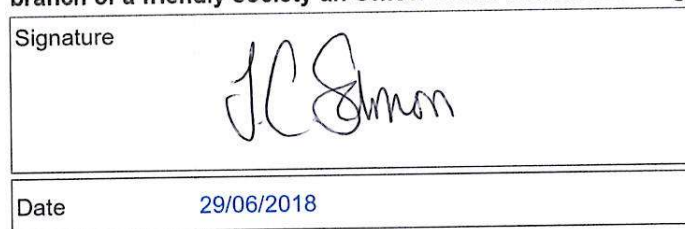 branch of a friendly society an
Signature
J.C
Date 29/06/2018